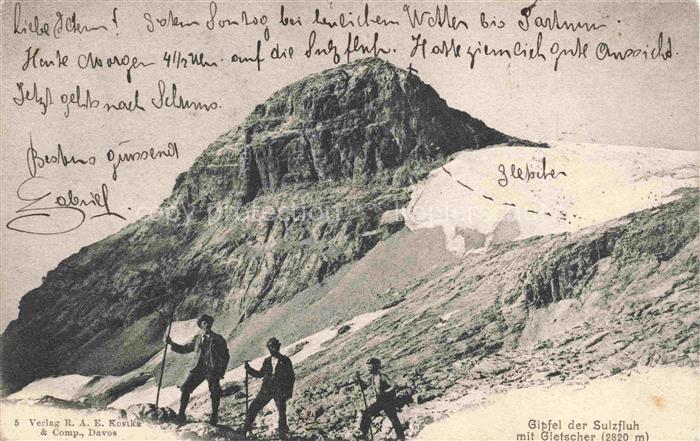 Liebe Ideen! Gestern Sonntag bei herrlichem Wetter bis Partnun.
Heute Morgen 4 1/2 Uhr auf die Sulzfluh. Hatte ziemlich gute Aussicht.
Jetzt gehts nach Schuns.
Bestens grüssend
Gabriel
Gletscher
copy protection
5 Verlag R. A. E. Kostka
& Comp., Davos
Gipfel der Sulzfluh
mit Gletscher (2820 m)